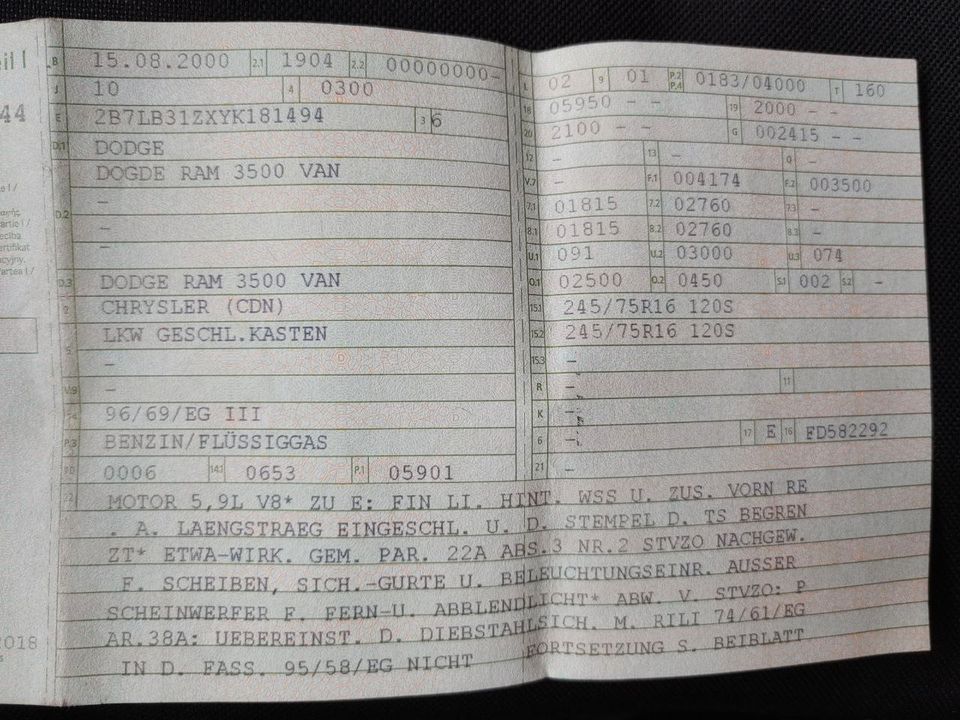 eil I
44
e I /
artie I /
ecība
ertifikat
acyjny.
artea I /
2018
B 15.08.2000 2.1 1904 2.2 00000000-
J 10 4 0300
E 2B7LB31ZXYK181494 3 6
D.1 DODGE
DOGDE RAM 3500 VAN
-
D.2 -
-
D.3 DODGE RAM 3500 VAN
2 CHRYSLER (CDN)
LKW GESCHL.KASTEN
5 -
V.9 -
14 96/69/EG III
P.3 BENZIN/FLÜSSIGGAS
10 0006 14.1 0653 P.1 05901
L 02 9 01 P.2 P.4 0183/04000 T 160
18 05950 - - 19 2000 - -
20 2100 - - G 002415 - -
12 - 13 - Q -
V.7 - F.1 004174 F.2 003500
7.1 01815 7.2 02760 7.3 -
8.1 01815 8.2 02760 8.3 -
U.1 091 U.2 03000 U.3 074
O.1 02500 O.2 0450 S.1 002 S.2 -
15.1 245/75R16 120S
15.2 245/75R16 120S
15.3 -
R - 11
K -
6 - 17 E 16 FD582292
21 -
22 MOTOR 5,9L V8* ZU E: FIN LI. HINT. WSS U. ZUS. VORN RE
. A. LAENGSTRAEG EINGESCHL. U. D. STEMPEL D. TS BEGREN
ZT* ETWA-WIRK. GEM. PAR. 22A ABS.3 NR.2 STVZO NACHGEW.
F. SCHEIBEN, SICH.-GURTE U. BELEUCHTUNGSEINR. AUSSER
SCHEINWERFER F. FERN-U. ABBLENDLICHT* ABW. V. STVZO: P
AR.38A: UEBEREINST. D. DIEBSTAHLSICH. M. RILI 74/61/EG
IN D. FASS. 95/58/EG NICHT FORTSETZUNG S. BEIBLATT